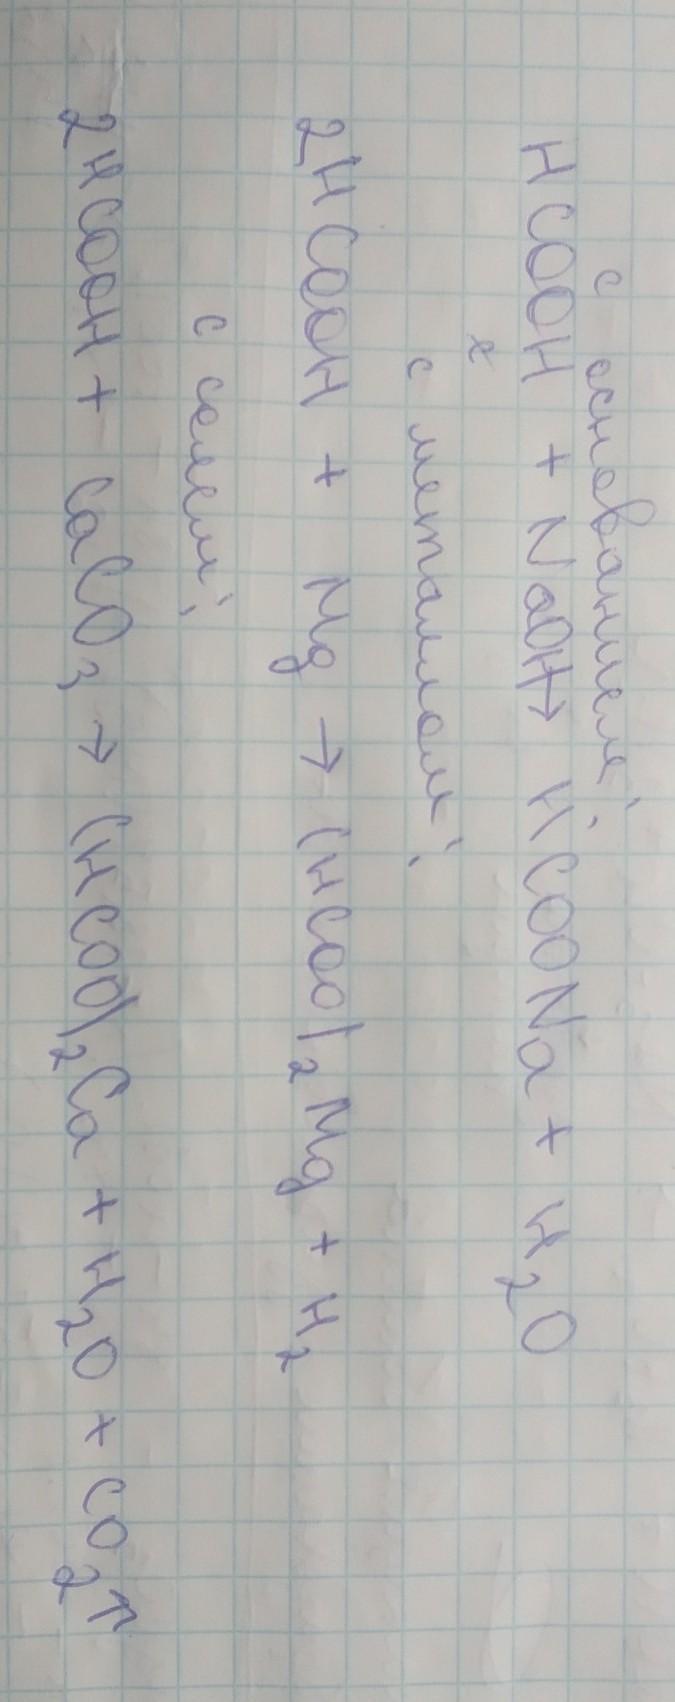 с основанием:
HCOOH + NaOH → HCOONa + H₂O
с металлом:
2HCOOH + Mg → (HCOO)₂Mg + H₂
с солем:
2HCOOH + CaCO₃ → (HCOO)₂Ca + H₂O + CO₂↑